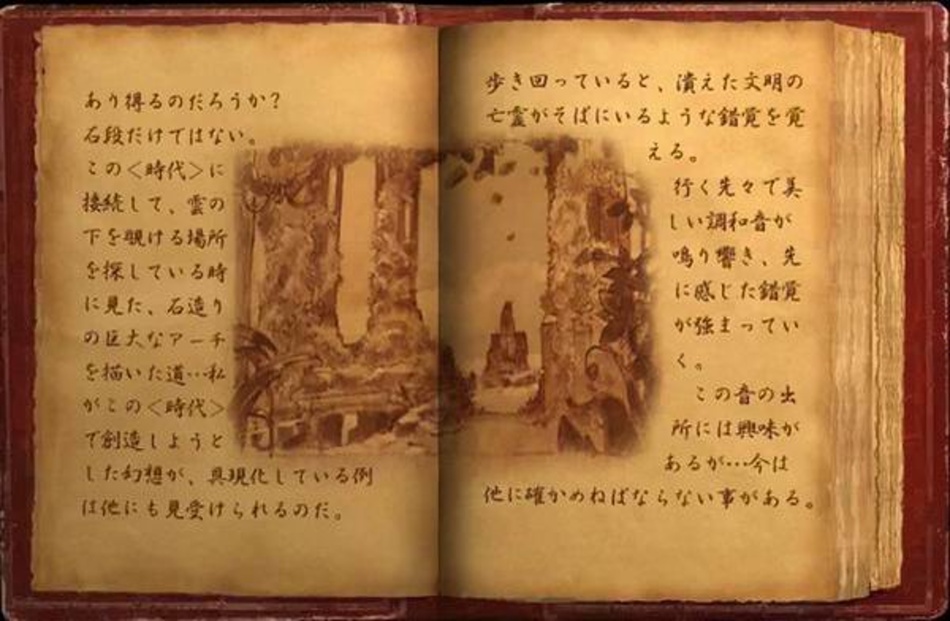 あり得るのだろうか？
石段だけではない。
この＜時代＞に
接続して、雲の
下を覗ける場所
を探している時
に見た、石造り
の巨大なアーチ
を描いた道…私
がこの＜時代＞
で創造しようと
した幻想が、具現化している例
は他にも見受けられるのだ。
歩き回っていると、潰えた文明の
亡霊がそばにいるような錯覚を覚
える。
行く先々で美
しい調和音が
鳴り響き、先
に感じた錯覚
が強まってい
く。
この音の出
所には興味が
あるが…今は
他に確かめねばならない事がある。